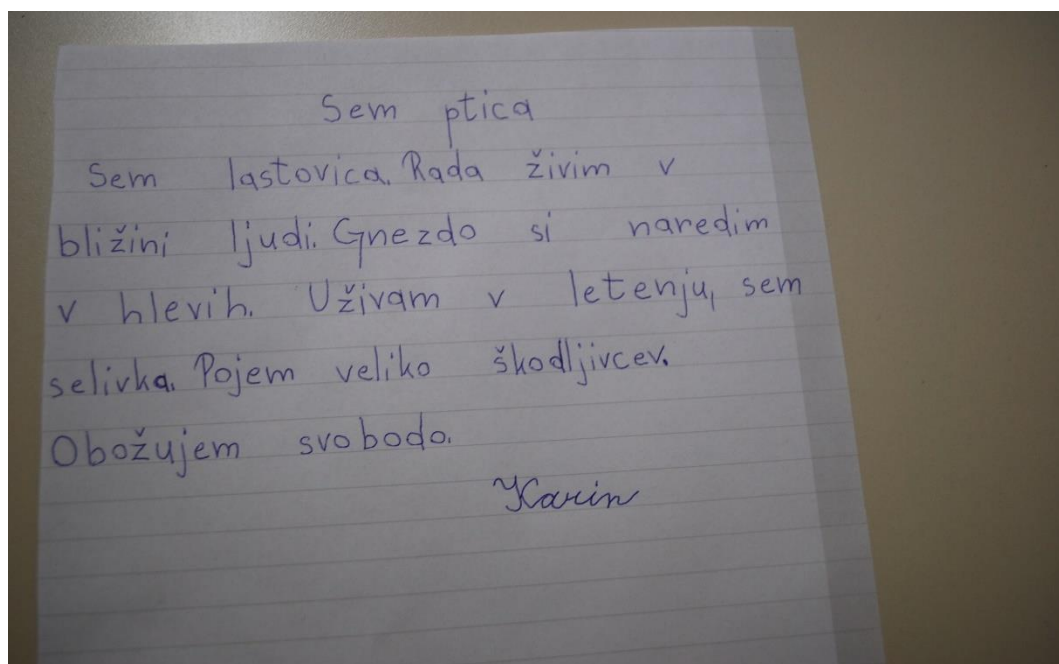 Sem ptica
Sem lastovica. Rada živim v
bližini ljudi. Gnezdo si naredim
v hlevih. Uživam v letenju, sem
selivka. Pojem veliko škodljivcev.
Obožujem svobodo.
Karin